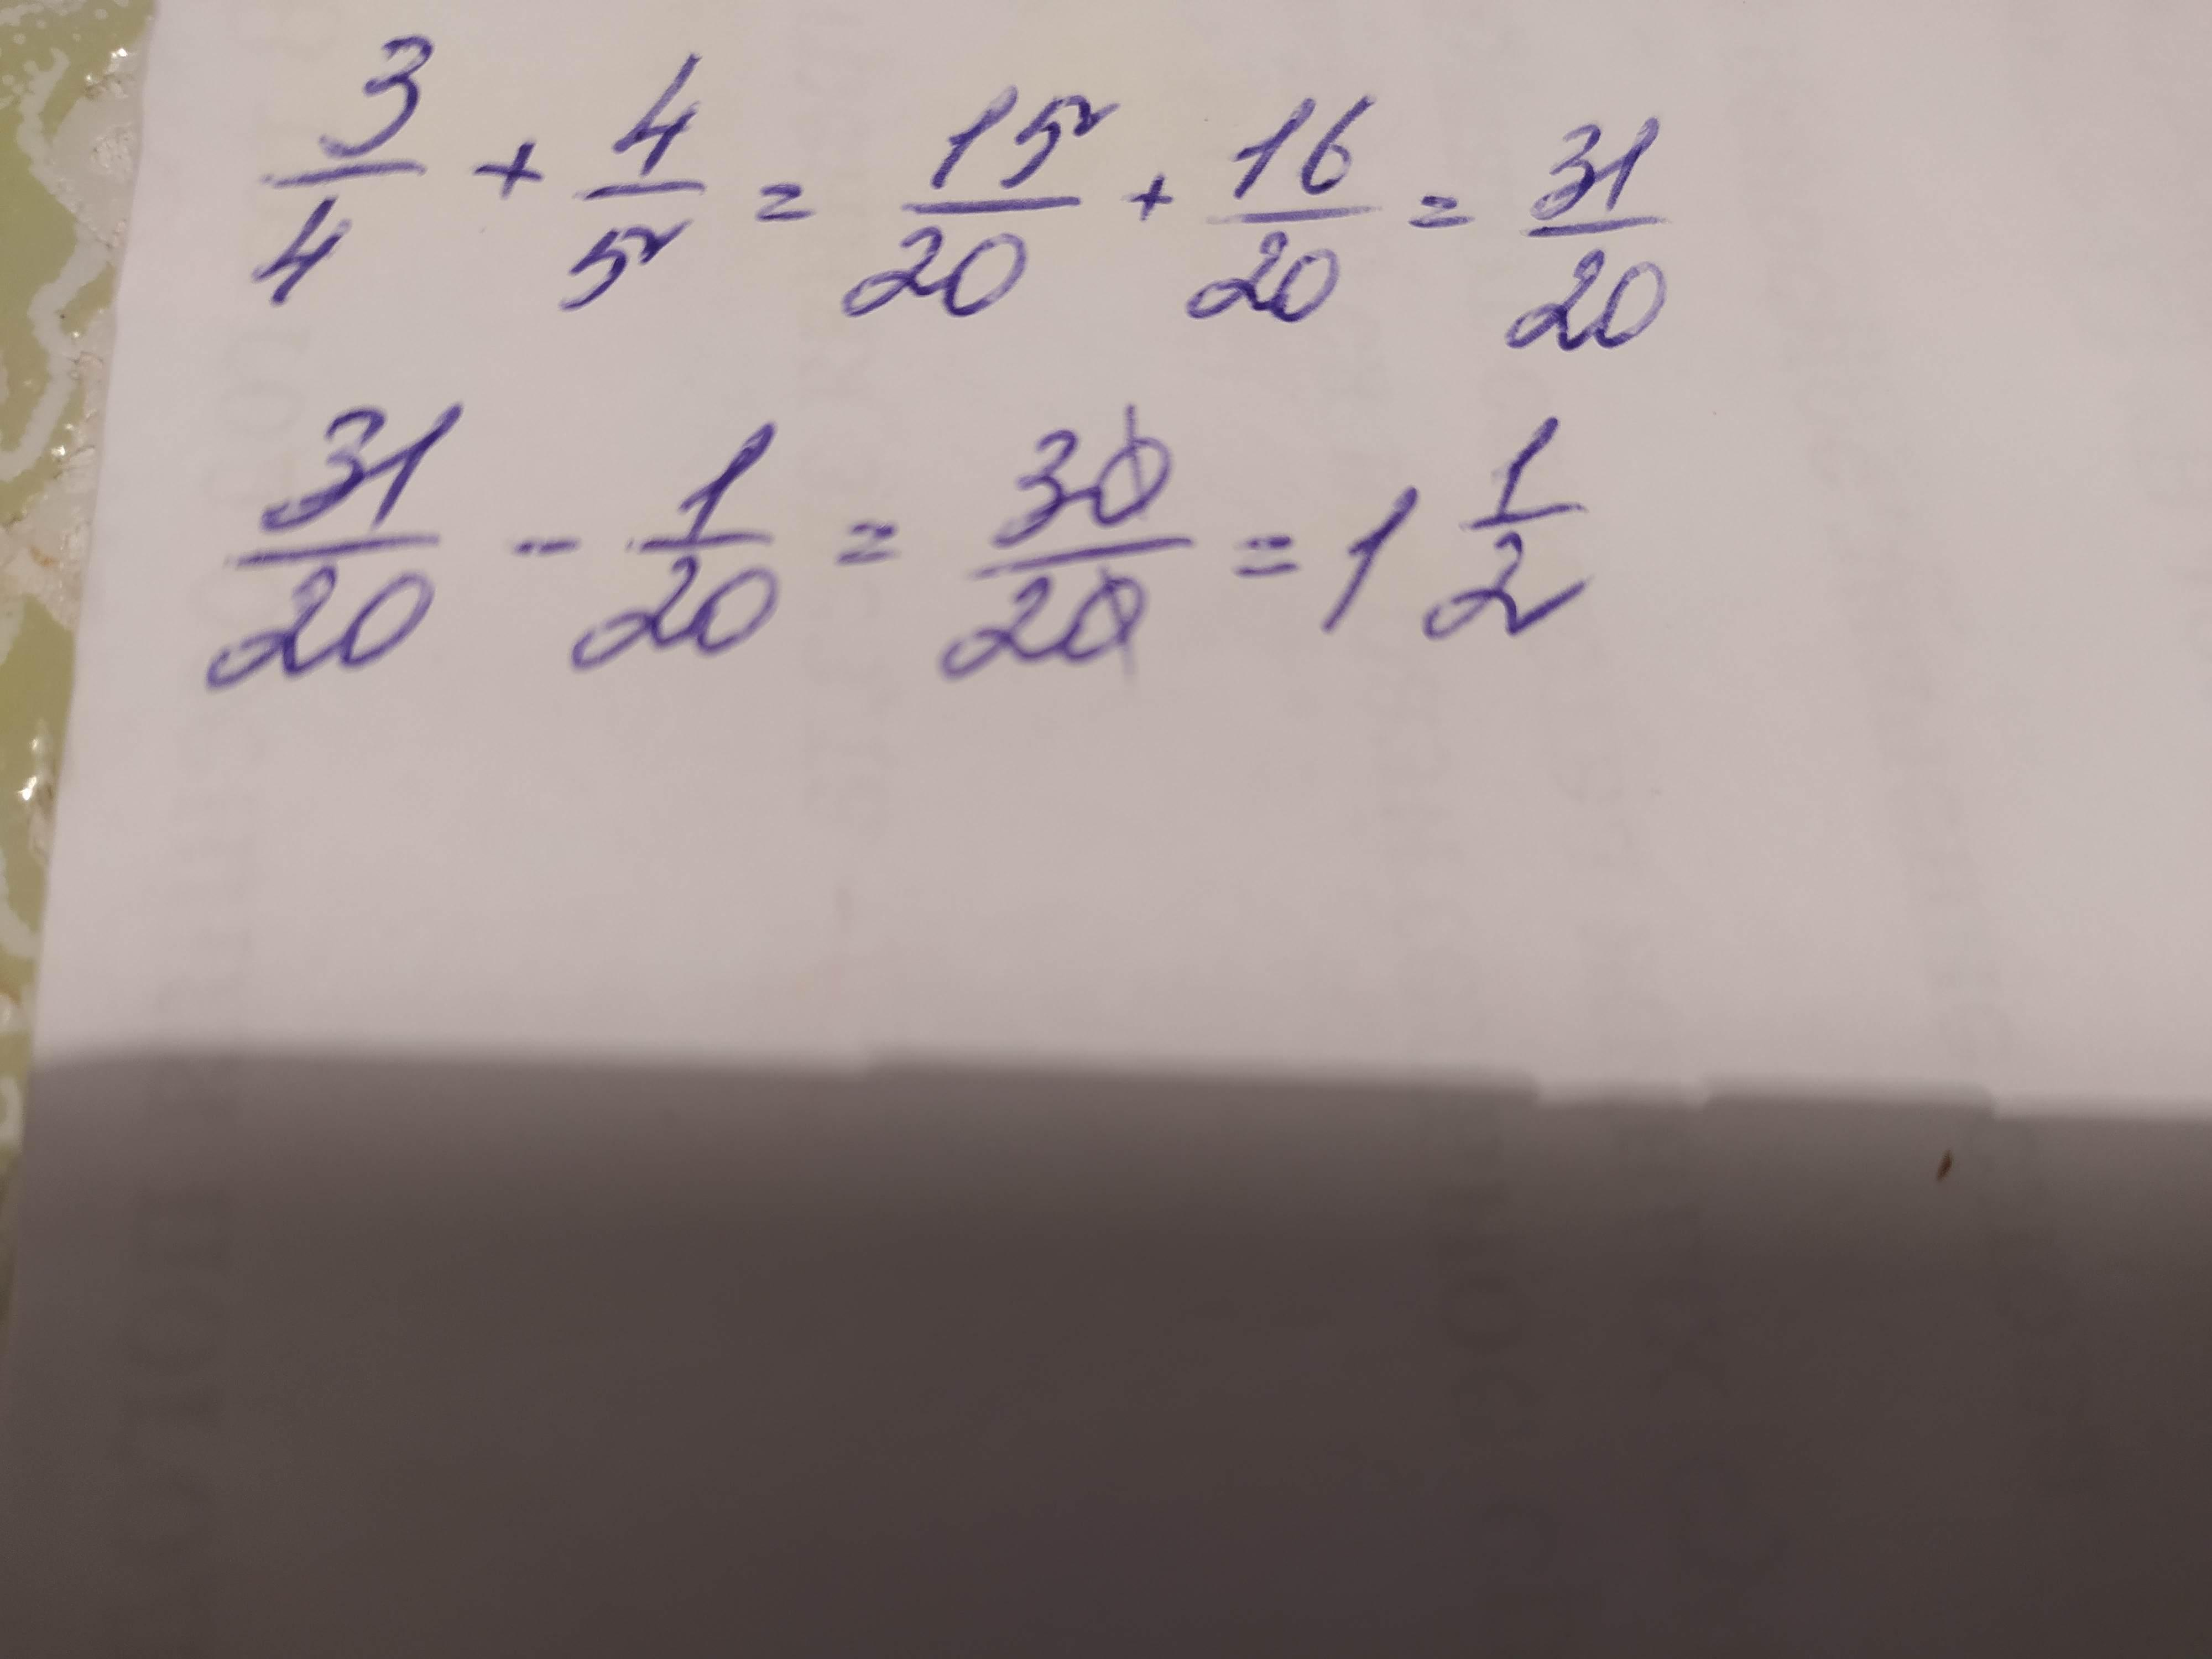 3/4 + 4/5 = 15/20 + 16/20 = 31/20
31/20 - 1/20 = 30/20 = 1 1/2